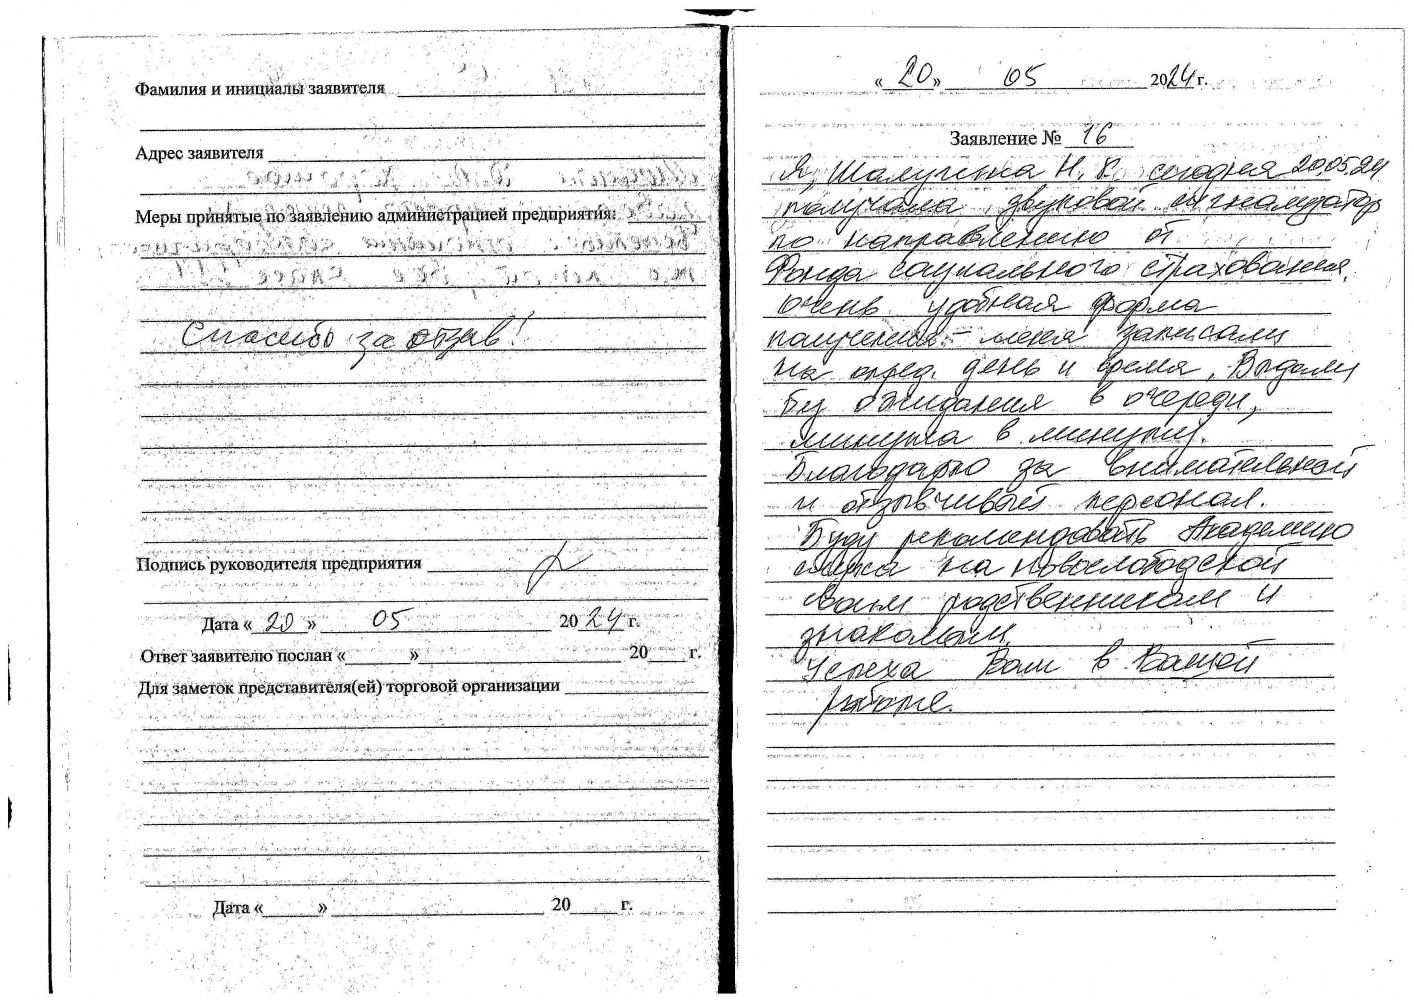 Фамилия и инициалы заявителя
Адрес заявителя
Меры принятые по заявлению администрацией предприятия:
Спасибо за отзыв!
Подпись руководителя предприятия
Дата «20» 05 2024 г.
Ответ заявителю послан « » 20 г.
Для заметок представителя(ей) торговой организации
Дата « » 20 г.
«20» 05 2024 г.
Заявление № 16
Я, Н. сегодня 20.05.24
получала звуковой сигнализатор
по направлению от
Фонда социального страхования.
Очень удобная форма
получения - меня записали
на опред. день и время. Выдали
без ожидания в очереди,
минута в минуту.
Благодарю за внимательной
и отзывчивый персонал.
Буду рекомендовать Академию
слуха на Новослободской
своим родственникам и
знакомым.
Успеха Вам в Вашей
работе.